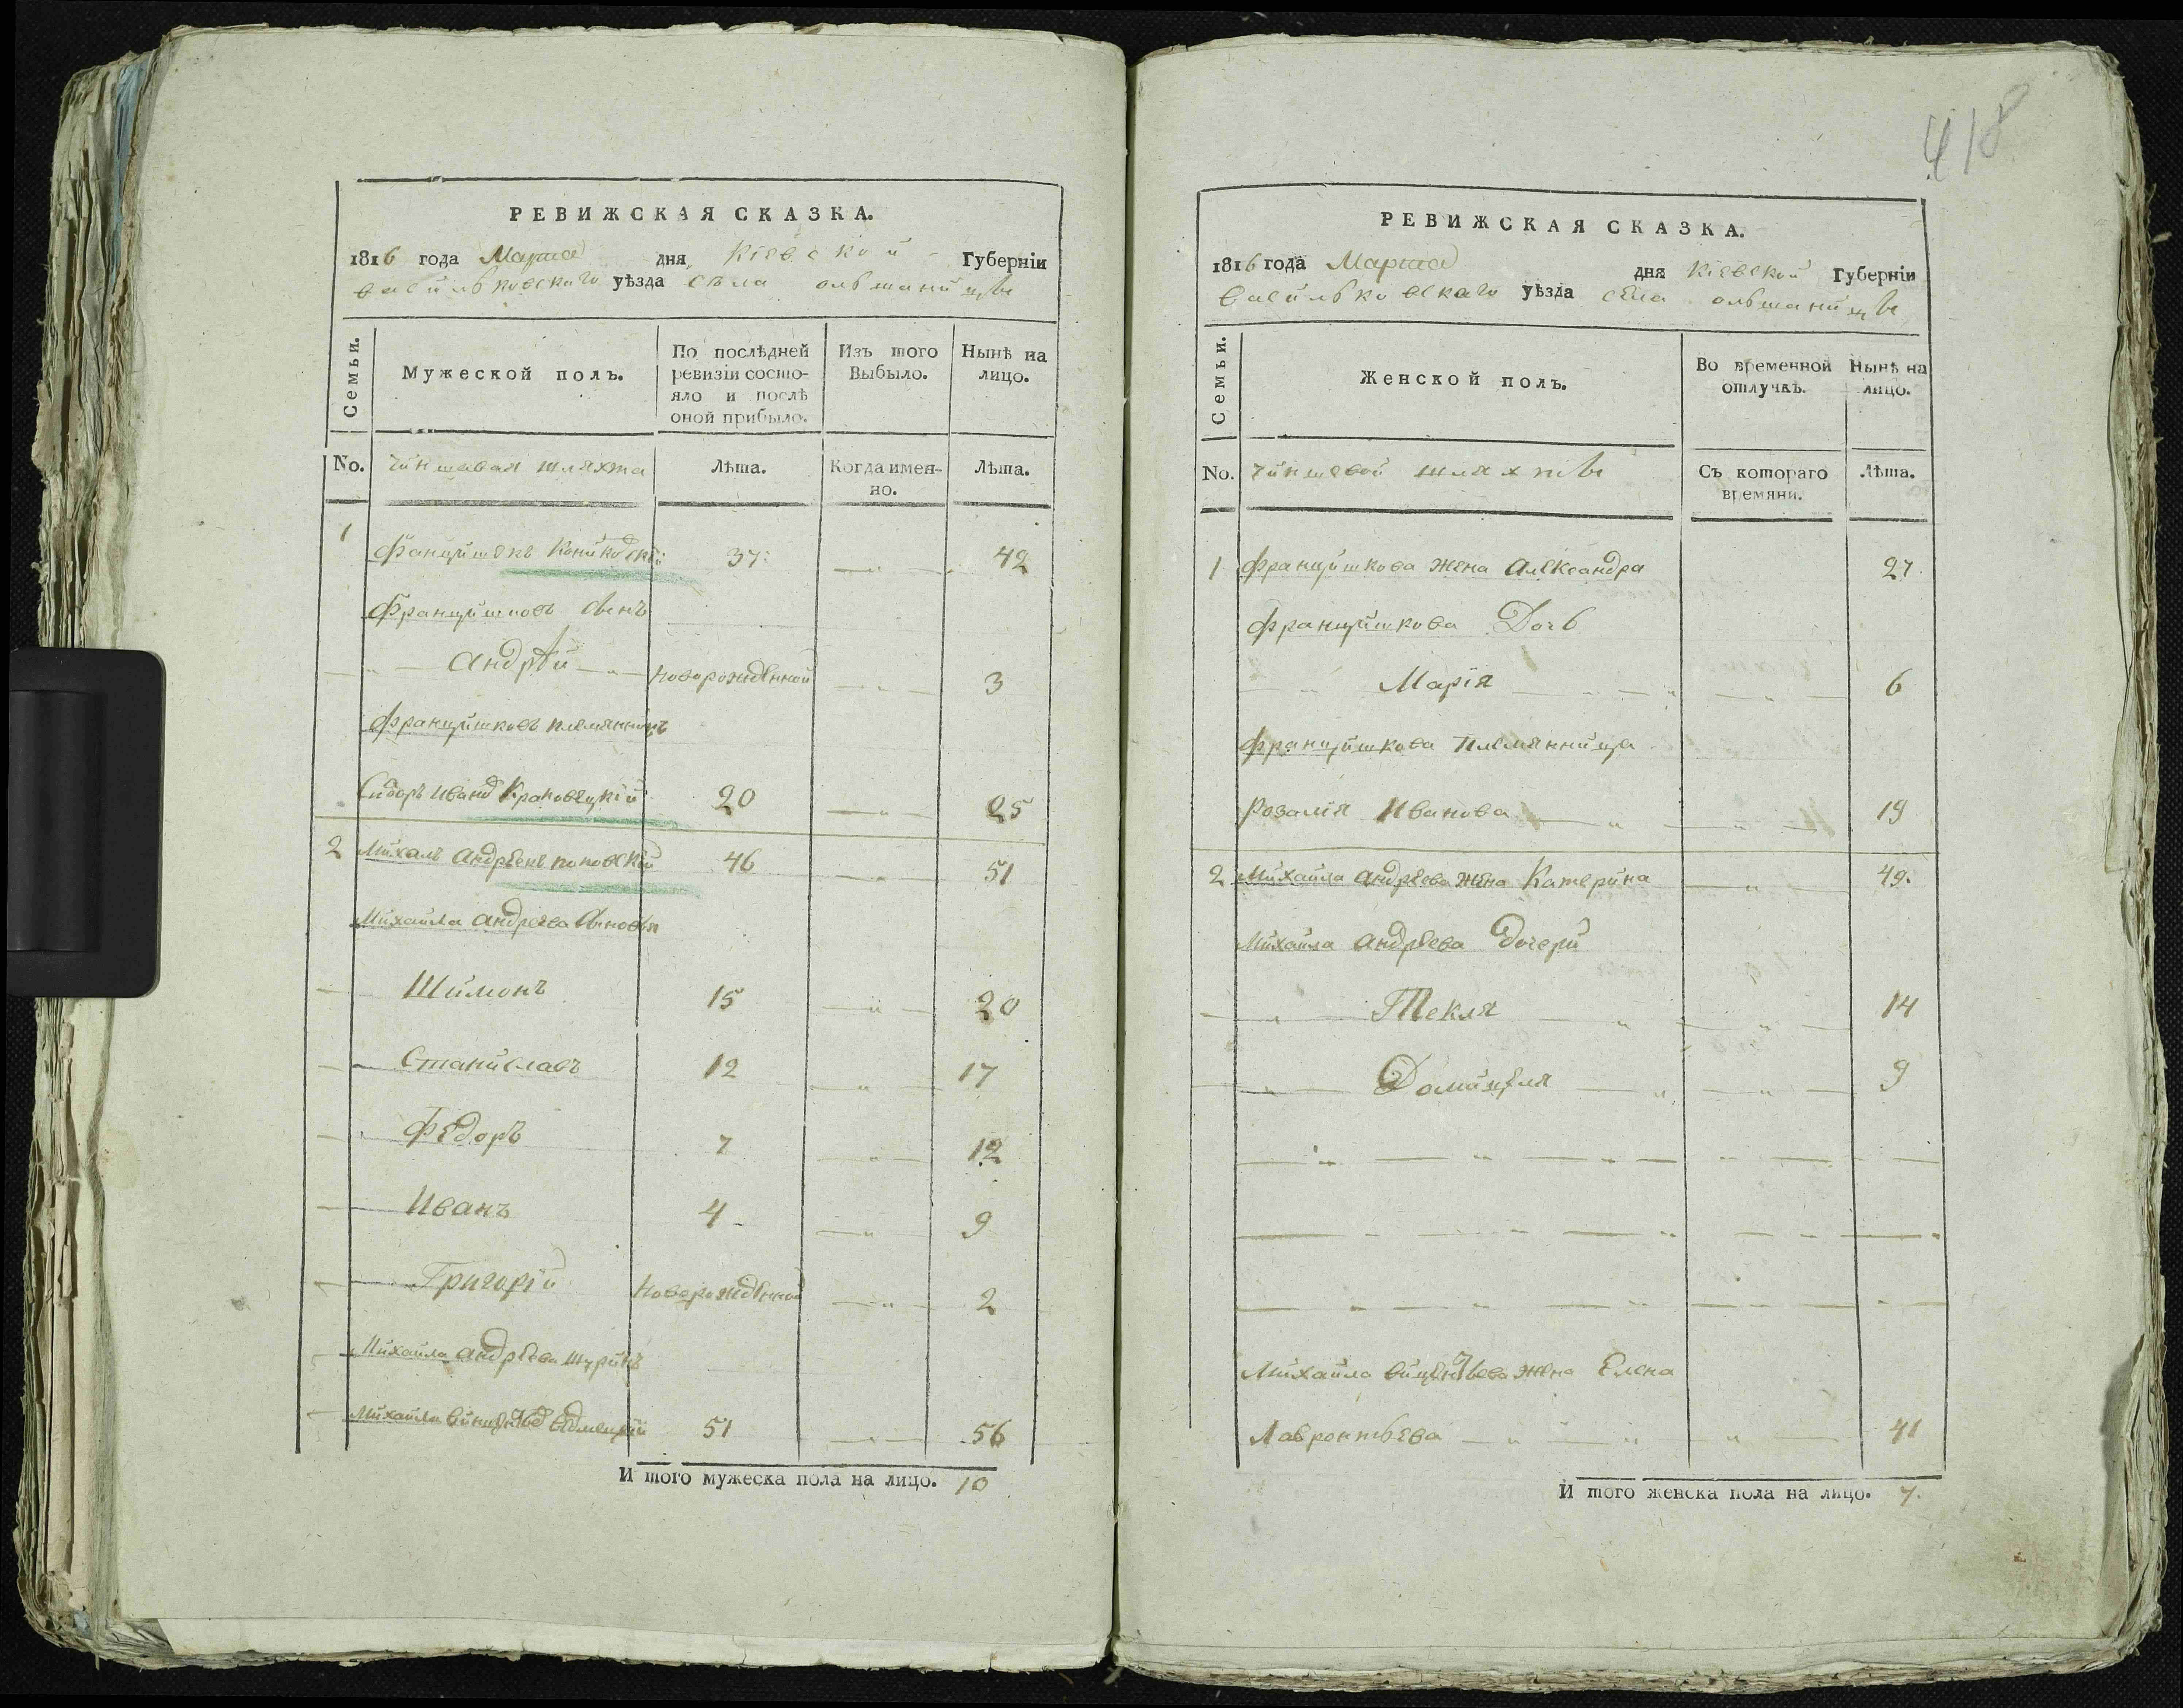 418
РЕВИЖСКАЯ СКАЗКА.
1816 года Марта дня Кіевской Губерніи
васильковскаго уѣзда села ольшаницы
Семьи.
Мужеской полъ.
По послѣдней ревизіи состояло и послѣ оной прибыло.
Изъ того Выбыло.
Нынѣ на лицо.
No. чиншевая шляхта Лѣта. Когда именно. Лѣта.
1 Францишекъ 37 42
Францишковъ сынъ
Андрѣй новорожденной 3
Францишковъ племянникъ
Сидоръ Иванов 20 25
2 Михалъ Андрѣевъ 46 51
Михайла Андреева сыновья
Шимонъ 15 20
Станиславъ 12 17
Федоръ 7 12
Иванъ 4 9
Григорій Новорожденной 2
Михайла Андрѣева Шуринъ
Михайла 51 56
И того мужеска пола на лицо. 10
РЕВИЖСКАЯ СКАЗКА.
1816 года Марта дня Кіевской Губерніи
васильковскаго уѣзда села ольшаницы
Семьи.
Женской полъ.
Во временной отлучкѣ.
Нынѣ на лицо.
No. чиншевой шляхты Съ котораго времяни. Лѣта.
1 Францишкова жена Александра 27
Францишкова Дочь
Марія 6
Францишкова Племянница
Розалія Иванова 19
2 Михайла Андрѣева жена Катерина 49.
Михайла Андрѣева дочери
Текля 14
Домицеля 9
Михайла жена Елена
Лавронтьева 41
И того женска пола на лицо. 7.